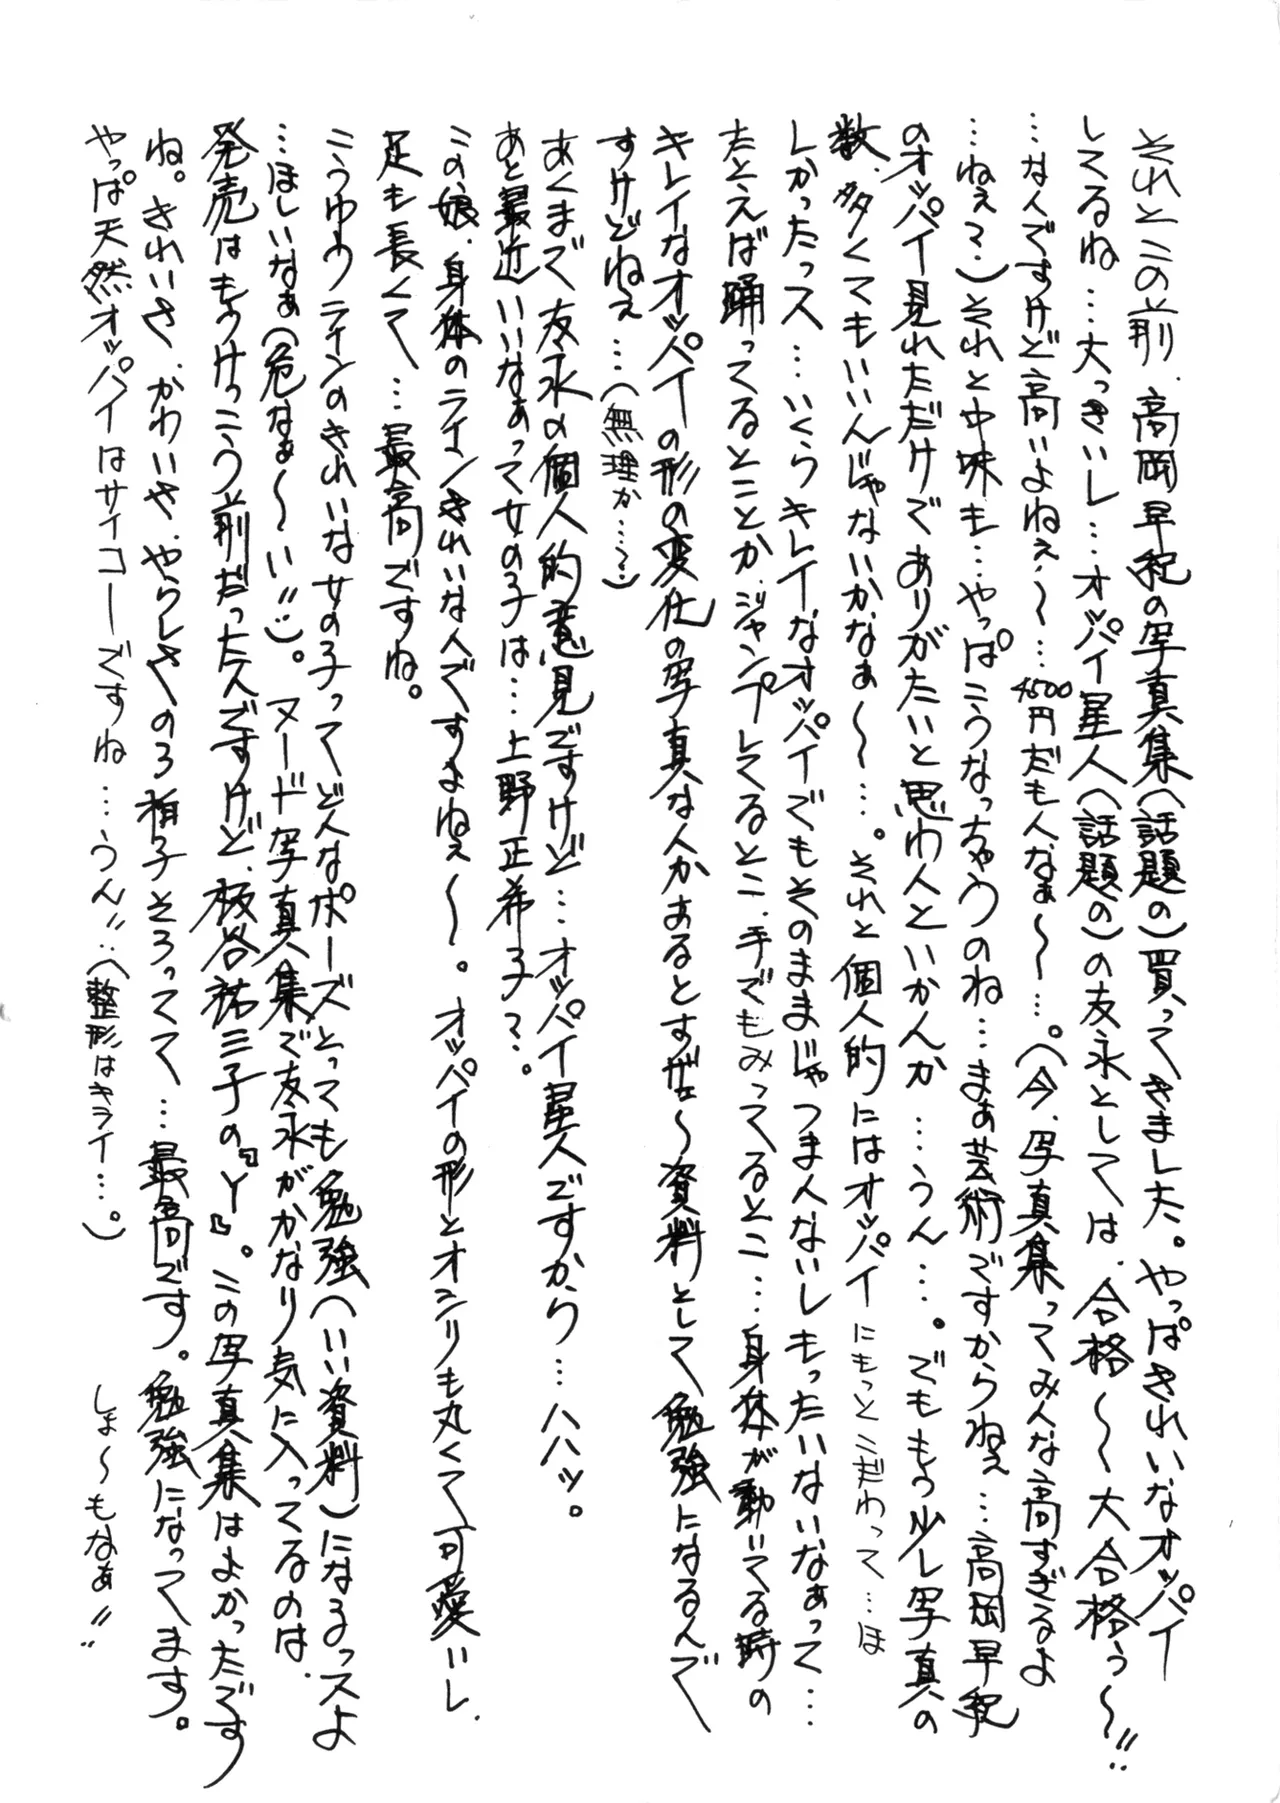 それとこの前、高岡早紀の写真集(話題の)買ってきました。やっぱきれいなオッパイ
してるね…大っきいし…オッパイ星人(話題の)の友永としては、合格~~大合格ぅ~!!
…なんですけど高いよねぇ~~…4500円だもんなぁ~~…。(今、写真集ってみんな高すぎるよ
…ねぇ?)それと中味も…やっぱこうなっちゃうのね…まぁ芸術ですからねぇ…高岡早紀
のオッパイ見れただけでありがたいと思わんといかんか…うん…。でももう少し写真の
数、多くてもいいんじゃないかなぁ~~…。それと個人的にはオッパイにもっとこだわって…ほ
しかったっス…いくらキレイなオッパイでもそのままじゃつまんないしもったいないなぁって…
たとえば踊ってるとことか、ジャンプしてるとこ、手でもみってるとこ…身体が動いてる時の
キレイなオッパイの形の変化の写真な人かあるとすげェ~資料として勉強になるんで
すけどねぇ…(無理か…?)
あくまで友永の個人的意見ですけど…オッパイ星人ですから…ハハッ。
あと最近いいなぁって女の子は…上野正希子?。
この娘、身体のラインきれいな人ですよねぇ~。オッパイの形とオシリも丸くて可愛いし、
足も長くて…最高ですね。
こうゆうラインのきれいな女の子ってどんなポーズとっても勉強(いい資料)になるっスよ
…ほしいなぁ(危なぁ~~い!!)。ヌード写真集で友永がかなり気に入ってるのは、
発売はもうけっこう前だったんですけど、板谷祐三子の『Y』。この写真集はよかったです
ね。きれいさ、かわいさ、やらしさの3拍子そろってて…最高です。勉強になってます。
やっぱ天然オッパイはサイコーですね…うん!!…(整形はキライ…。)　しょ~もなぁ!!